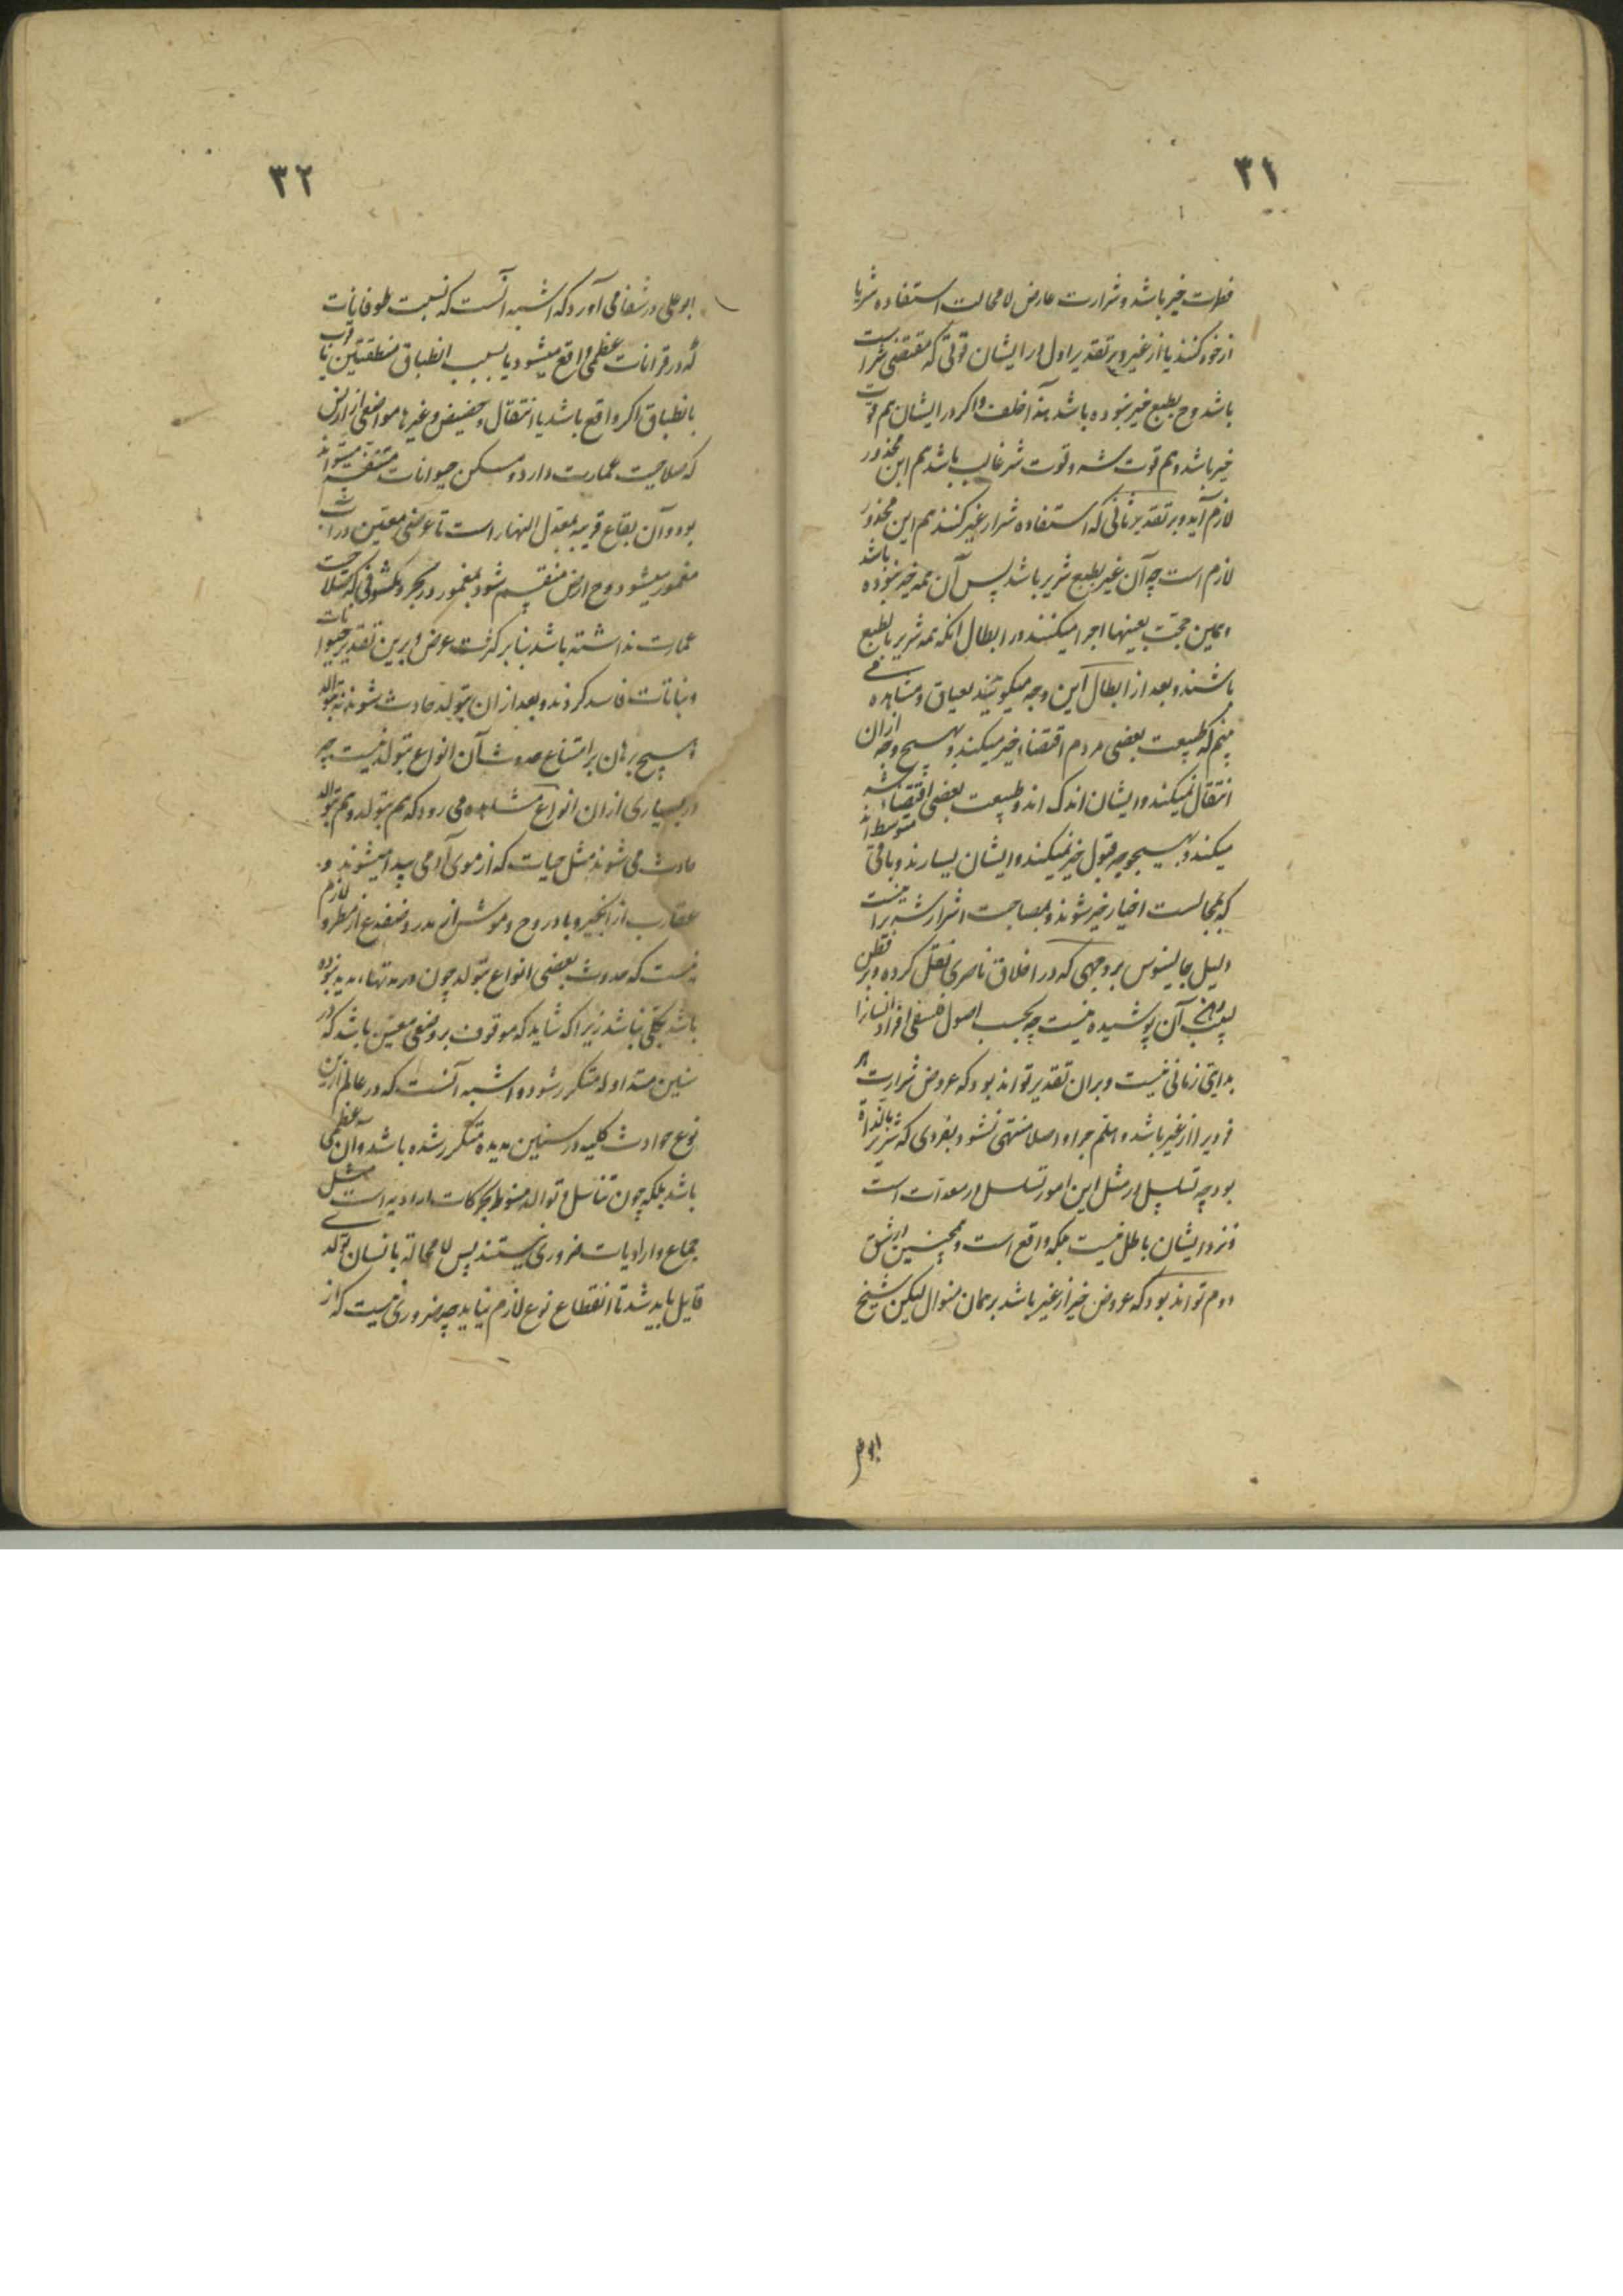 ۳۱
فطرت خیر باشد و شرارت عارض لا محالت استفاده شر یا
از خود کنند یا از غیر و بر تقدیر اول در ایشان قوتی که مقتضی شر است
باشد وح بطبع خیر نبوده باشد هذا خلف و اکر در ایشان هم قوت
خیر باشد و هم قوت شر و قوت شر غالب باشد هم این محذور
لازم آید و بر تقدیر ثانی که استفاده شر از غیر کنند هم این محذور
لازم است چه آن غیر بطبع شریر باشد پس آن همه خیر نبوده باشد
و همین حجت بعینها اجرا میکنند در ابطال انکه همه شریر بالطبع
باشند و بعد از ابطال این وجه میکویند بعیان و مشاهده می
بینم که طبیعت بعضی مردم اقتضاء خیر میکند و بهیچ وجه از ان
انتقال نمیکند و ایشان اندک اند و طبیعت بعضی اقتضاء شر
میکند و بهیچ وجه قبول خیر نمیکند و ایشان بسیارند و باقی متوسط اند
که بمجالست اخیار خیر شوند و بمصاحبت اشرار شریر اینست
دلیل جالینوس بر وجهی که در اخلاق ناصری نقل کرده و بر فطن
لبیب آن پوشیده نیست چه بحسب اصول فلسفی افراد انسانرا
بدایتی زمانی نیست و بران تقدیر تواند بود که عروض شرارت هر
فردیرا از غیر باشد و هلم جرا و اصلا منتهی نشود بفردی که شریر بالذات
بود چه تسلسل در مثل این امور تسلسل در معدات است
و نزد ایشان باطل نیست بلکه واقع است و همچنین در شق
دوم تواند بود که عروض خیر از غیر باشد بر همان منوال لیکن شیخ
ابو علی
۳۲
ابو علی در شفا می آورد که اشبه آنست که نسبت طوفانات
که در قرانات عظمی واقع میشود یا بسبب انطباق منطقتین یا قرب
بانطباق اکر واقع باشد یا انتقال و حضیض و غیرها مواضعی از ارض
که صلاحیت عمارت دارد و مسکن حیوانات متنفسه میتواند
بود و آن بقاع قریبه بمعدل النهار است تا عرضی معین در آب
مغمور میشود وح ارض منقسم شود بمغمور در بحر و مکشوفی که صلاحیت
عمارت نداشته باشد بنا بر کثرت عرض و برین تقدیر حیوانات
و نباتات فاسد کردند و بعد از ان بتولد حادث شوند نه بتوالد
و هیچ برهان بر امتناع حدوث آن انواع بتولد نیست چه
در بسیاری از ان انواع مشاهده می رود که هم بتولد و هم بتوالد
حادث می شوند مثل حیات که از موی آدمی پیدا میشوند و
عقارب از انجیر و بادروج و موش از مدر و ضفدع از مطر و لازم
نیست که حدوث بعضی انواع بتولد چون در مدتها مدید نبوده
باشد بکلی نباشد زیرا که شاید که موقوف بر وضعی معین باشد که در
سنین متداوله متکرر نشود و اشبه آنست که در عالم ازین
نوع حوادث کلیه در سنین مدیده متکرر شده باشد و آن سنه عظمی
باشد بلکه چون تناسل و توالد منوط بحرکات ارادیه است مثل
جماع و ارادیات ضروری نیستند پس لا محاله بانسان تولدی
قایل باید شد تا انقطاع نوع لازم نیاید چه ضروری نیست که از